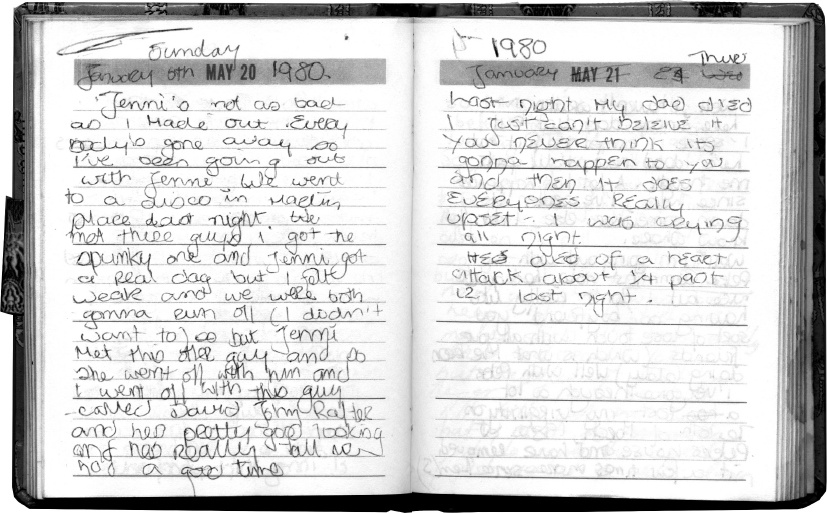 Sunday
January 6th MAY 20 1980.
"Jenni's not as bad
as I Made out. Every
body's gone away so
I've been going out
with Jenni We went
to a disco in Martin
Place last night. We
met these guys I got the
spunky one and Jenni got
a Real dag but I felt
weak and we were both
gonna run off (I didn't
want to) so but Jenni
Met this other guy and so
she went off with him and
I went off with this guy
called David John Rafter
and hes pretty good looking
and hes Really tall we
had a good time
1980
Thurs
January MAY 21
Last night My dad died
I just can't beleive it
You never think its
gonna happen to you
and then it does
Everyones Really
upset - I was crying
all night.
Hes died of a heart
attack about 1/4 past
12 last night.